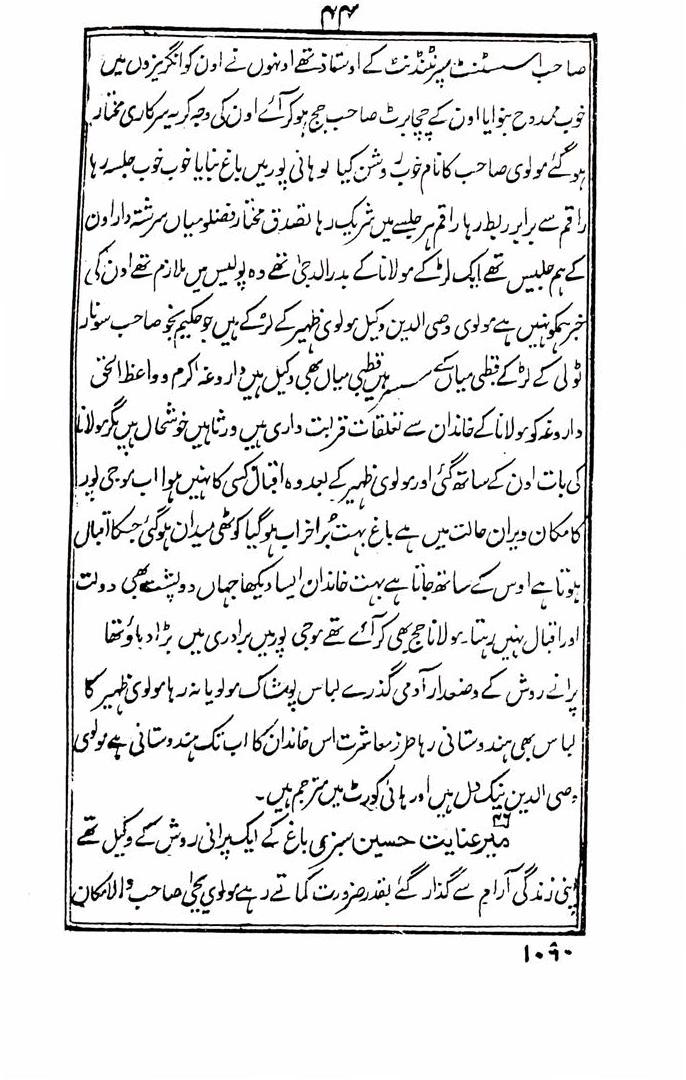 ۴۴
صاحب اسسٹنٹ سپرنٹنڈنٹ کے اوستاذ تھے اونہوں نے اون کو انگریزوں میں
خوب ممدوح بنوایا اون کے چچا برٹ صاحب جج ہو کر آئے اون کی وجہ کر یہ سرکاری مختار
ہو گئے مولوی صاحب کا نام خوب روشن کیا لوہانی پور میں باغ بنایا خوب خوب جلسہ رہا
راقم سے برابر ربط رہا راقم ہر جلسے میں شریک رہا تصدق مختار فضلو میاں سرشتہ دار اون
کے ہم جلیس تھے ایک لڑکے مولانا کے بدرالدجیٰ تھے وہ پولیس میں ملازم تھے اون کی
خبر ہمکو نہیں ہے مولوی وصی الدین وکیل مولوی ظہیر کے لڑکے ہیں جو حکیم نجو صاحب سونار
ٹولی کے لڑکے قطبی میاں کے ہیں قطبی میاں بھی وکیل ہیں داروغہ اکرم و واعظ الحق
داروغہ کو مولانا کے خاندان سے تعلقات قربت داری ہیں ورثا ہیں خوشحال ہیں مگر مولانا
کی بات اون کے ساتھ گئی اور مولوی ظہیر کے بعد وہ اقبال کسی کا نہیں ہوا اب موجی پور
کا مکان ویران حالت میں ہے باغ بہت برا خراب ہو گیا کوٹھی میدان ہو گئی جسکا اقبال
ہوتا ہے اوس کے ساتھ جاتا ہے بہت خاندان ایسا دیکھا جہاں دو پشت بھی دولت
اور اقبال نہیں رہتا۔ مولانا حج بھی کر آئے تھے موجی پور میں برادری میں بڑا دباؤ تھا
پرانے روش کے وضعدار آدمی گذرے لباس پوشاک مولویانہ رہا مولوی ظہیر کا
لباس بھی ہندوستانی رہا طرز معاشرت اس خاندان کا اب تک ہندوستانی ہے مولوی
وصی الدین نیک دل ہیں اور ہائی کورٹ میں مترجم ہیں۔
میر عنایت حسین سبزی باغ کے ایک پرانی روش کے وکیل تھے
اپنی زندگی آرام سے گذار گئے بقدر ضرورت کماتے رہے مولوی یحییٰ صاحب والا مکان
۱۰۶۰